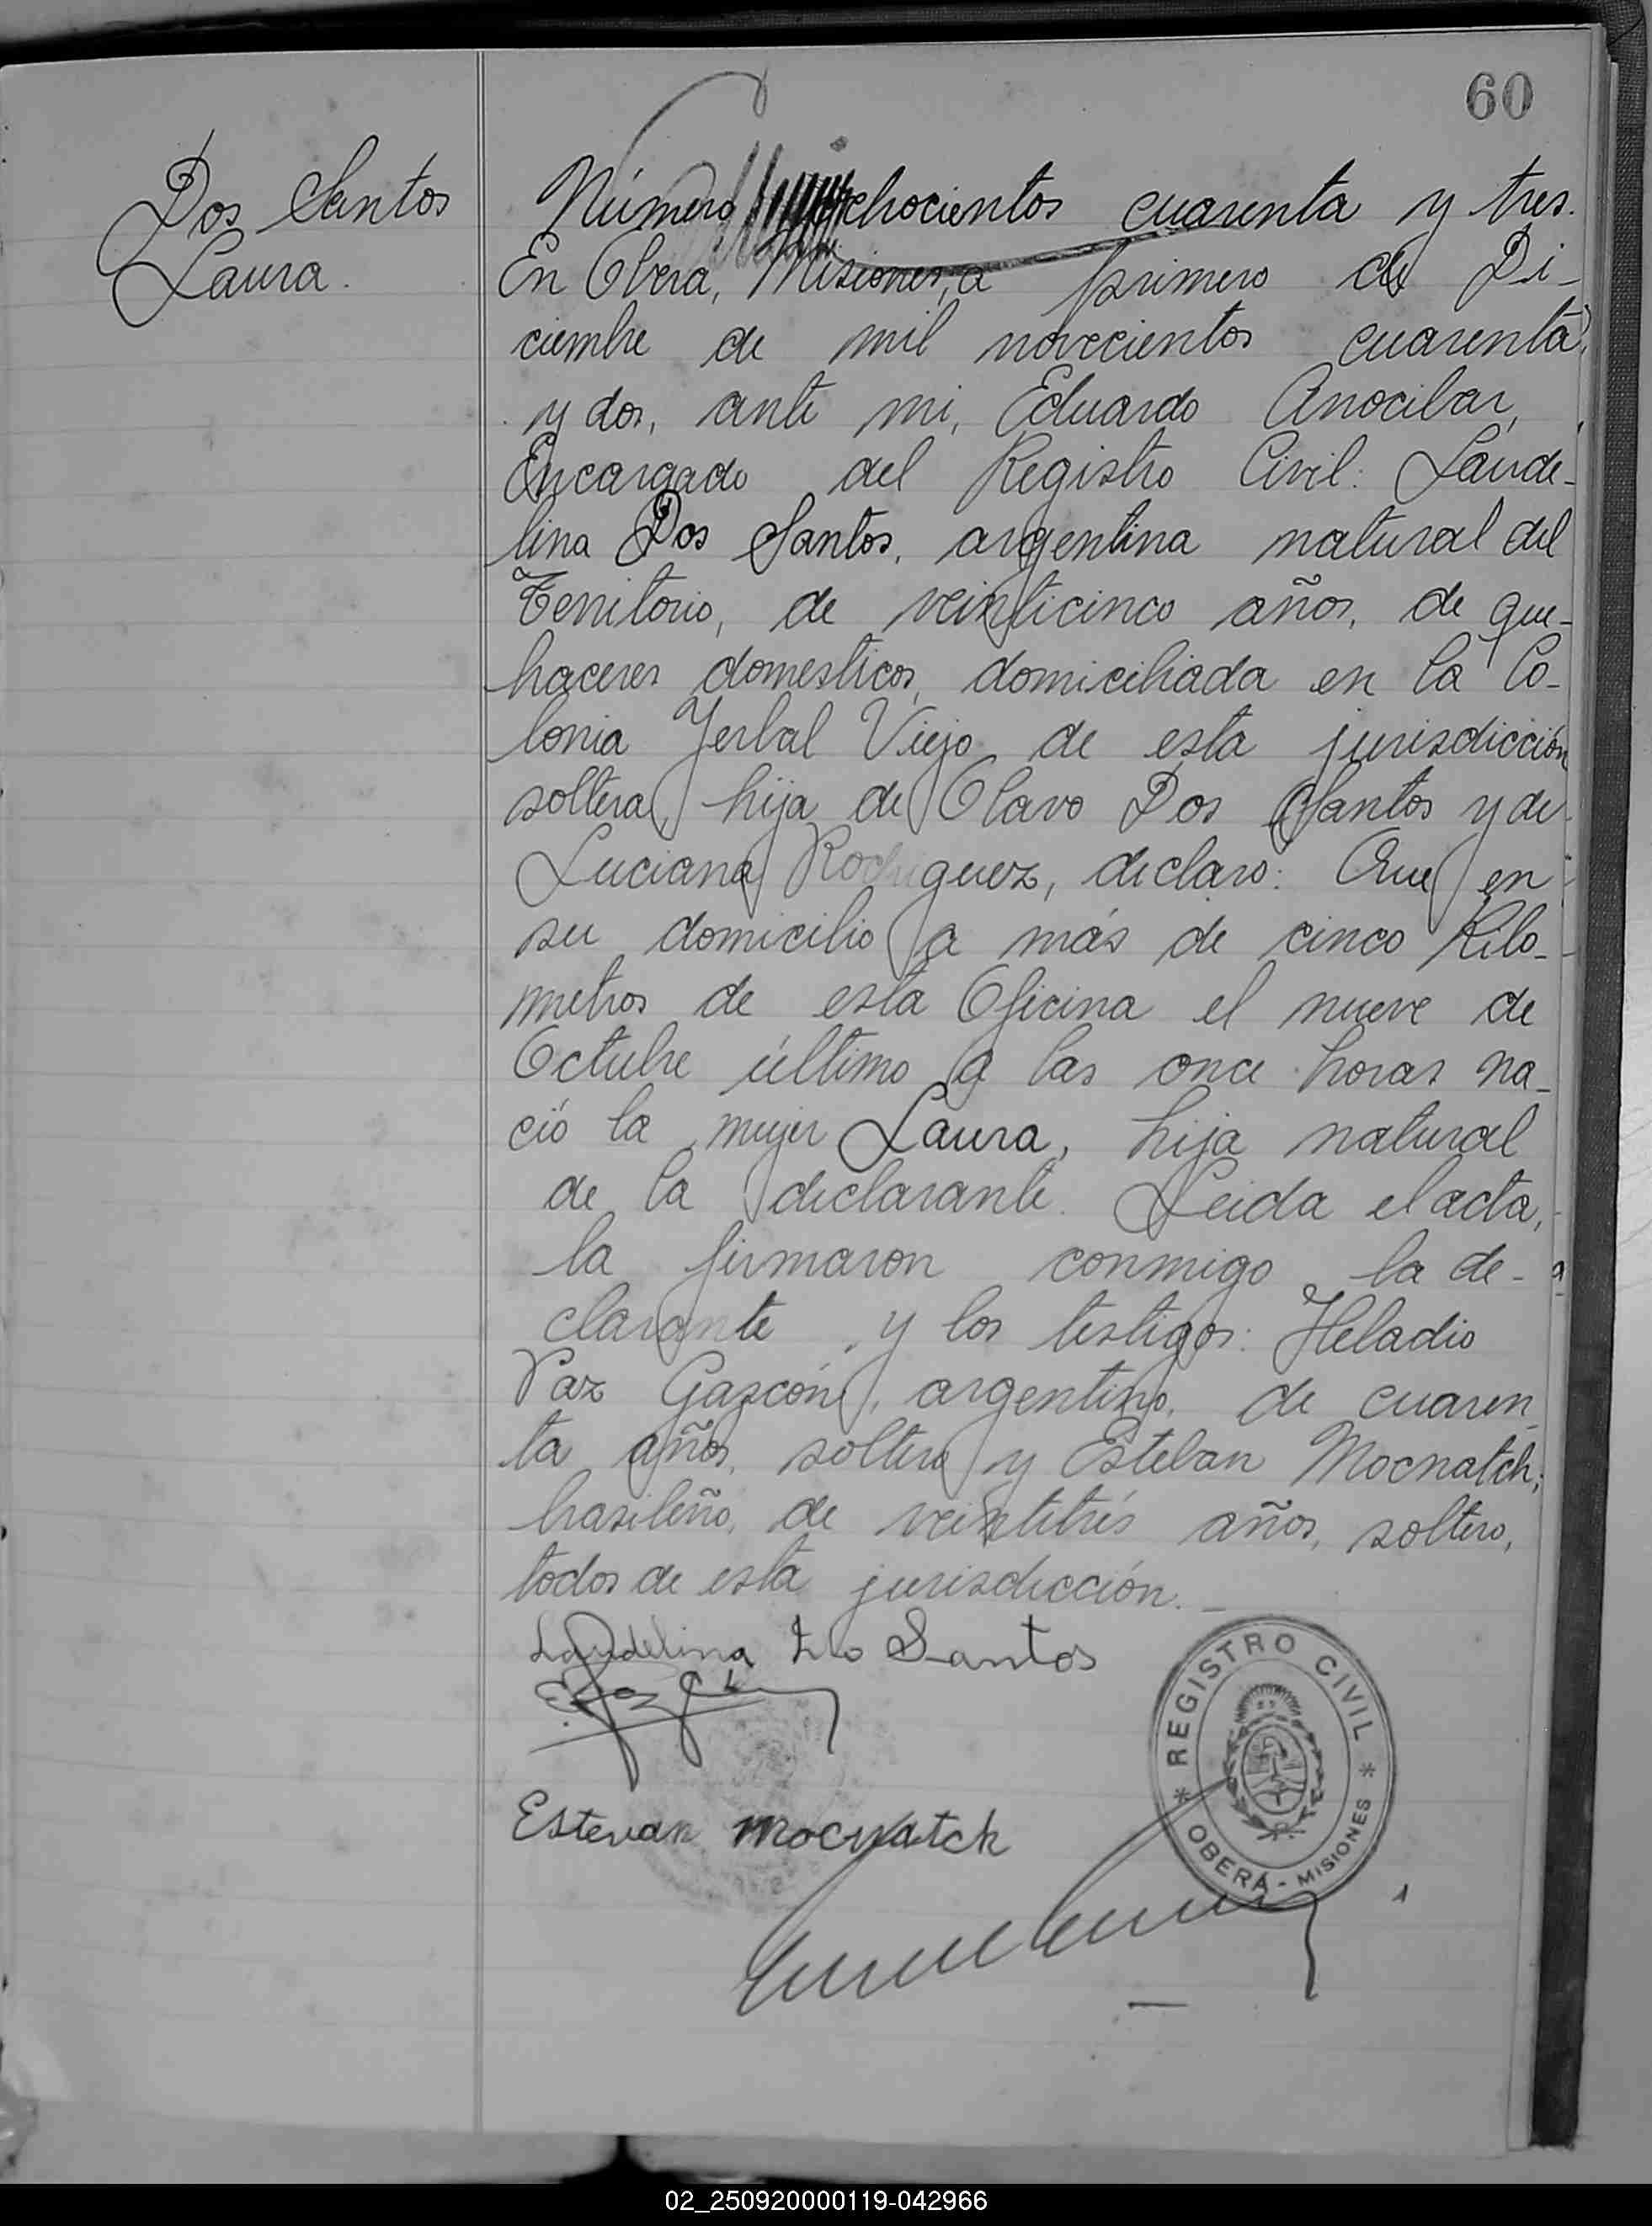 60
Dos Santos
Laura.
Número ochocientos cuarenta y tres.
En Obera, Misiones, a primero de Di-
ciembre de mil novecientos cuarenta
y dos, ante mi, Eduardo Anocibar,
Encargado del Registro Civil: Laude-
lina Dos Santos, argentina natural del
Territorio, de veinticinco años, de que-
haceres domesticos, domiciliada en la Co-
lonia Yerbal Viejo de esta jurisdicción
soltera, hija de Olavo Dos Santos y de
Luciana Rodriguez, declaro: Que en
su domicilio a más de cinco Kilo-
metros de esta Oficina el nueve de
Octubre último a las once horas na-
ció la mujer Laura, hija natural
de la declarante. Leida el acta,
la firmaron conmigo la de-
clarante y los testigos: Heladio
Paz Gazcón, argentino, de cuaren
ta años, soltero y Esteban Mocnatch,
brasileño, de veintitrés años, soltero,
todos de esta jurisdicción. -
Laudelina Do Santos
Estevan Mocnatch
REGISTRO CIVIL
* OBERÁ - MISIONES *
02_250920000119-042966